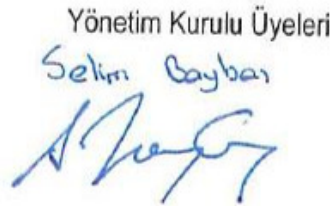 Yönetim Kurulu Üyeleri
Selim Baybas